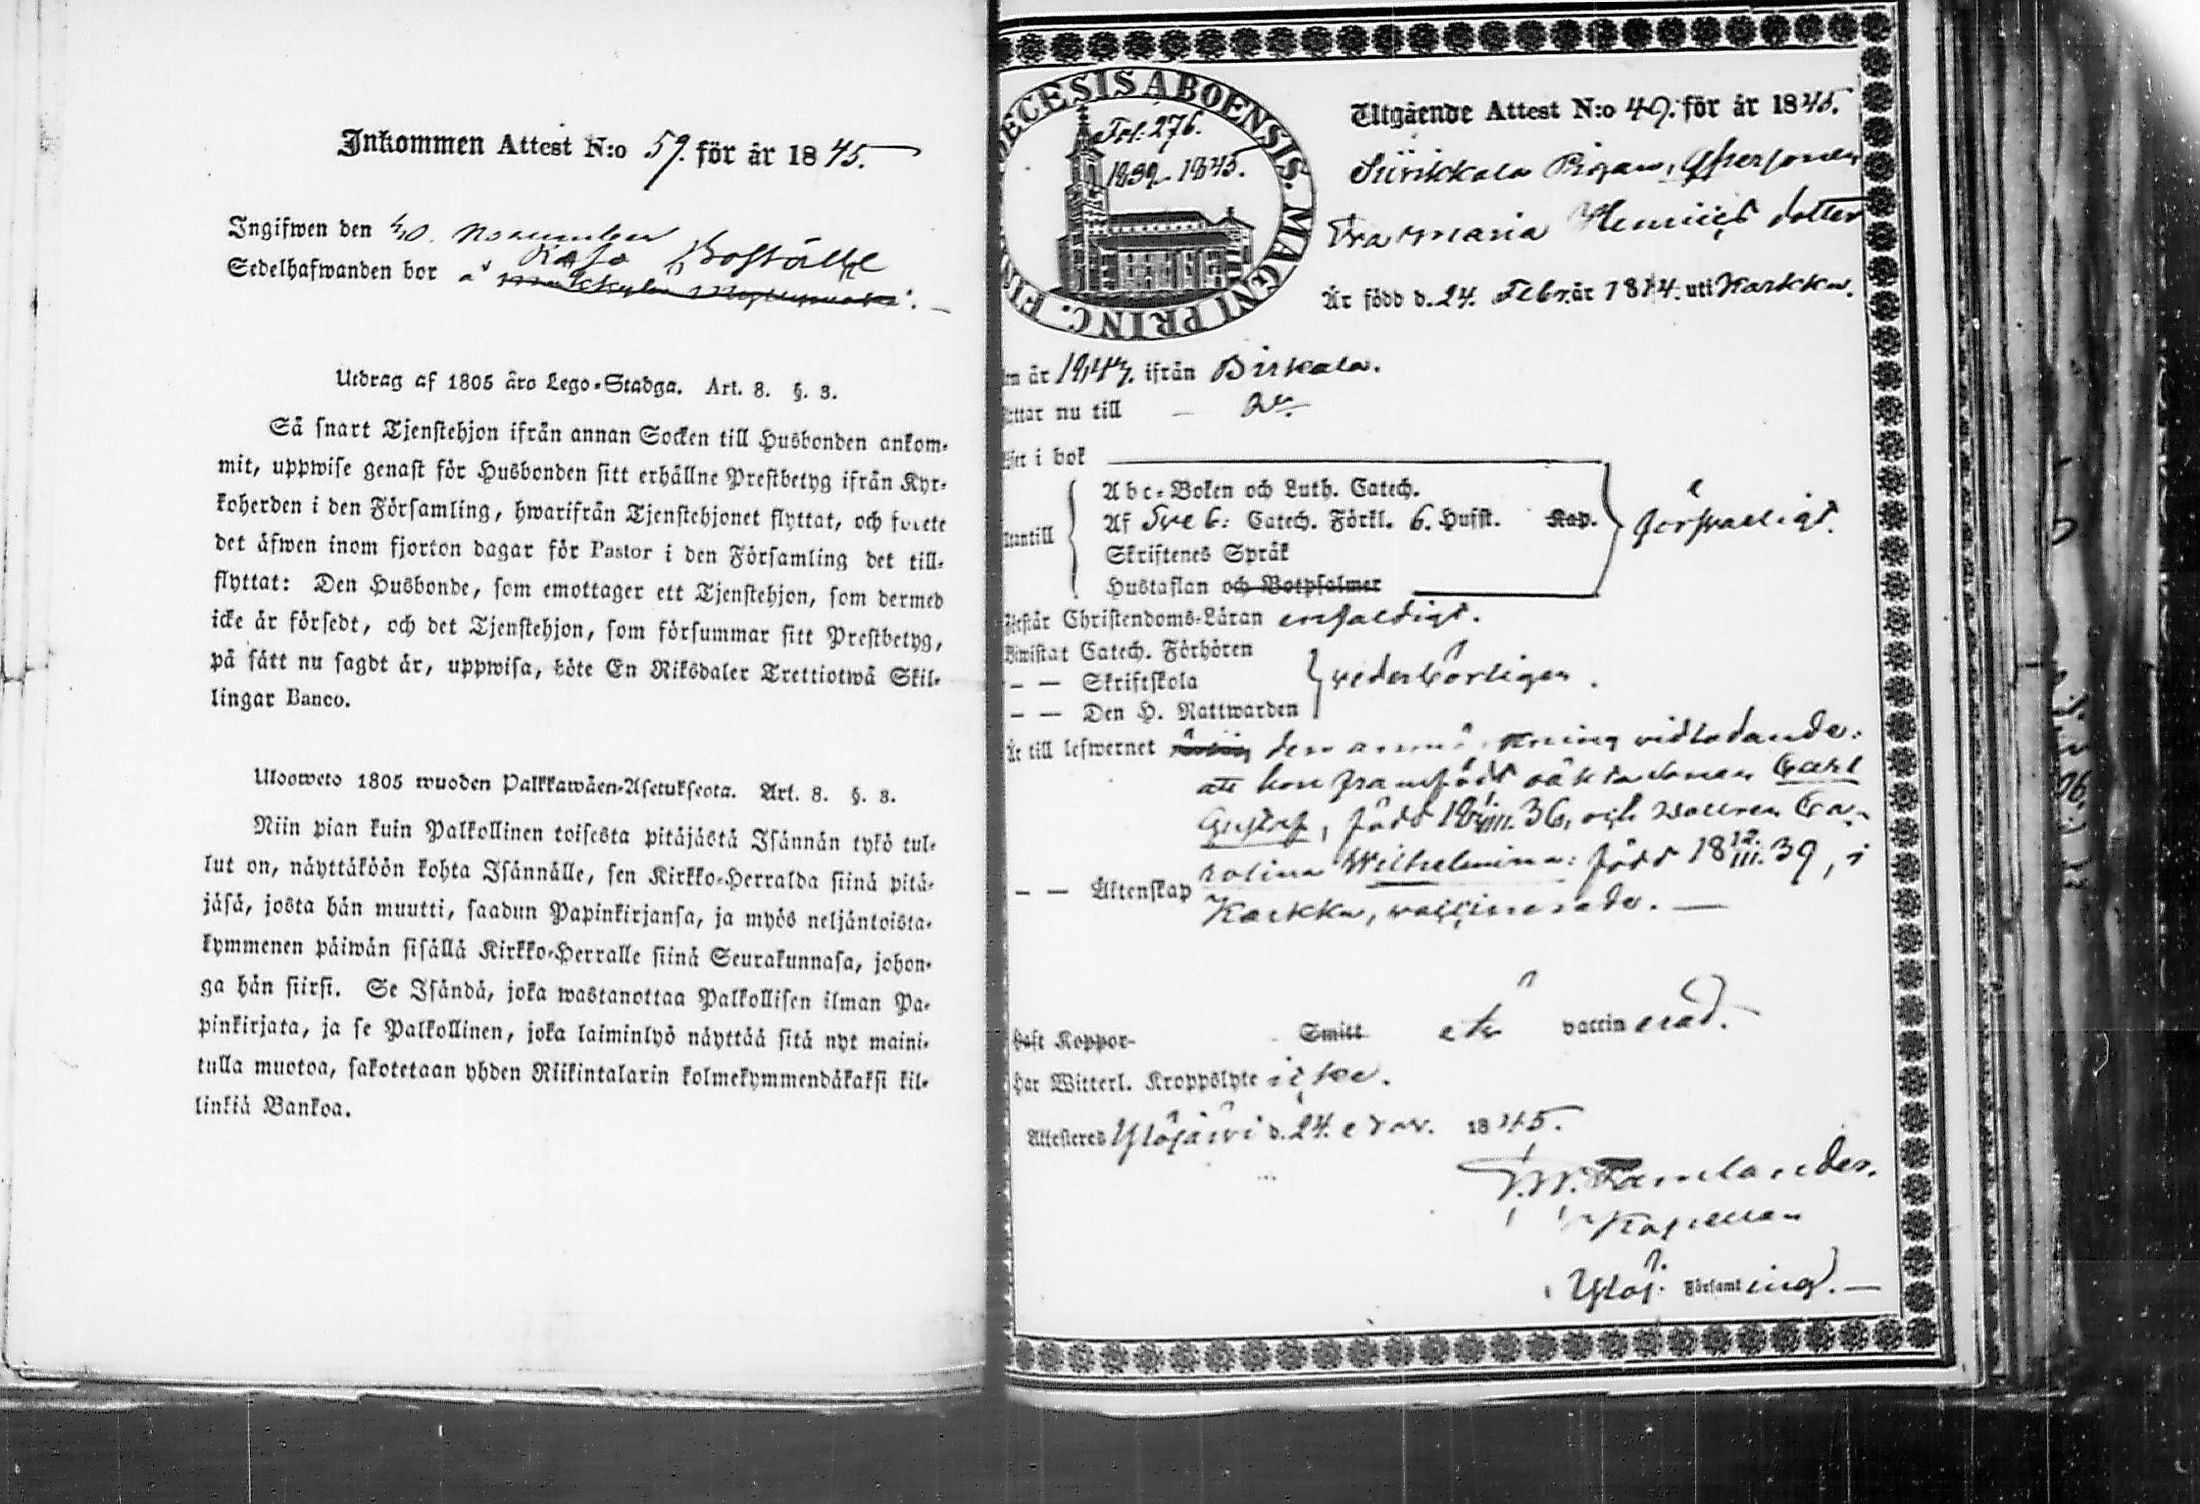 Inkommen Attest N:o 59. för år 1845.
Ingifwen den 30. november
Sedelhafwanden bor å Boställe
Utdrag af 1805 års Lego-Stadga. Art. 8. §. 3.
Så snart Tjenstehjon ifrån annan Socken till Husbonden ankom-
mit, uppwise genast för Husbonden sitt erhållne Prestbetyg ifrån Kyr-
koherden i den Församling, hwarifrån Tjenstehjonet flyttat, och förete
det äfwen inom fjorton dagar för Pastor i den Församling det till-
flyttat: Den Husbonde, som emottager ett Tjenstehjon, som dermed
icke är försedt, och det Tjenstehjon, som försummar sitt Prestbetyg,
på sätt nu sagdt är, uppwisa, böte En Riksdaler Trettiotwå Skil-
lingar Banco.
Ulosweto 1805 wuoden Palkkawäen-Asetuksesta. Art. 8. §. 3.
Niin pian kuin Palkollinen toisesta pitäjästä Isännän tykö tul-
lut on, näyttäköön kohta Isännälle, sen Kirkko-Herralda siinä pitä-
jäsä, josta hän muutti, saadun Papinkirjansa, ja myös neljäntoista-
kymmenen päiwän sisällä Kirkko-Herralle siinä Seurakunnasa, johon-
ga hän siirsi. Se Isändä, joka wastanottaa Palkollisen ilman Pa-
pinkirjata, ja se Palkollinen, joka laiminlyö näyttää sitä nyt maini-
tulla muotoa, sakotetaan yhden Riikintalarin kolmekymmendäkaksi kil-
linkiä Bankoa.
DECESIS ABOENSIS. MAGNI PRINC. FIN
Fol. 276.
1839-1845.
Utgående Attest N:o 49. för år 1845.
Siirikkala Pigan, Qspersonen
Eva Maria Henrics dotter
Är född d. 24. Febr. år 1814. uti Karkku.
år 1843. ifrån Birkala.
ttar nu till —
i bok
Abc-Boken och Luth. Catech.
Af Sveb: Catech. Förkl. 6. Hufst. Kap.
försvarligt.
antill
Skriftenes Språk
Hustaflan och Botpsalmer
Förstår Christendoms-Läran enfaldigt.
Biwistat Catech. Förhören
— — Skriftskola
vederbörligen.
— — Den H. Nattwarden
Är till lefwernet den anmärkning vidlådande:
att hon framfödt oäkta sonen Carl
Gustaf, född 18 36, och dottren Ca-
rolina Wilhelmina: född 18 12/III. 39, i
— — Äktenskap
Karkku, vaccinerade. —
Haft Koppor Smitt är vaccinerad.
Har Witterl. Kroppslyte icke.
Attesteras Ylöjärvi d. 24. Nov. 1845.
Kapellan
Ylöj. Församling. —